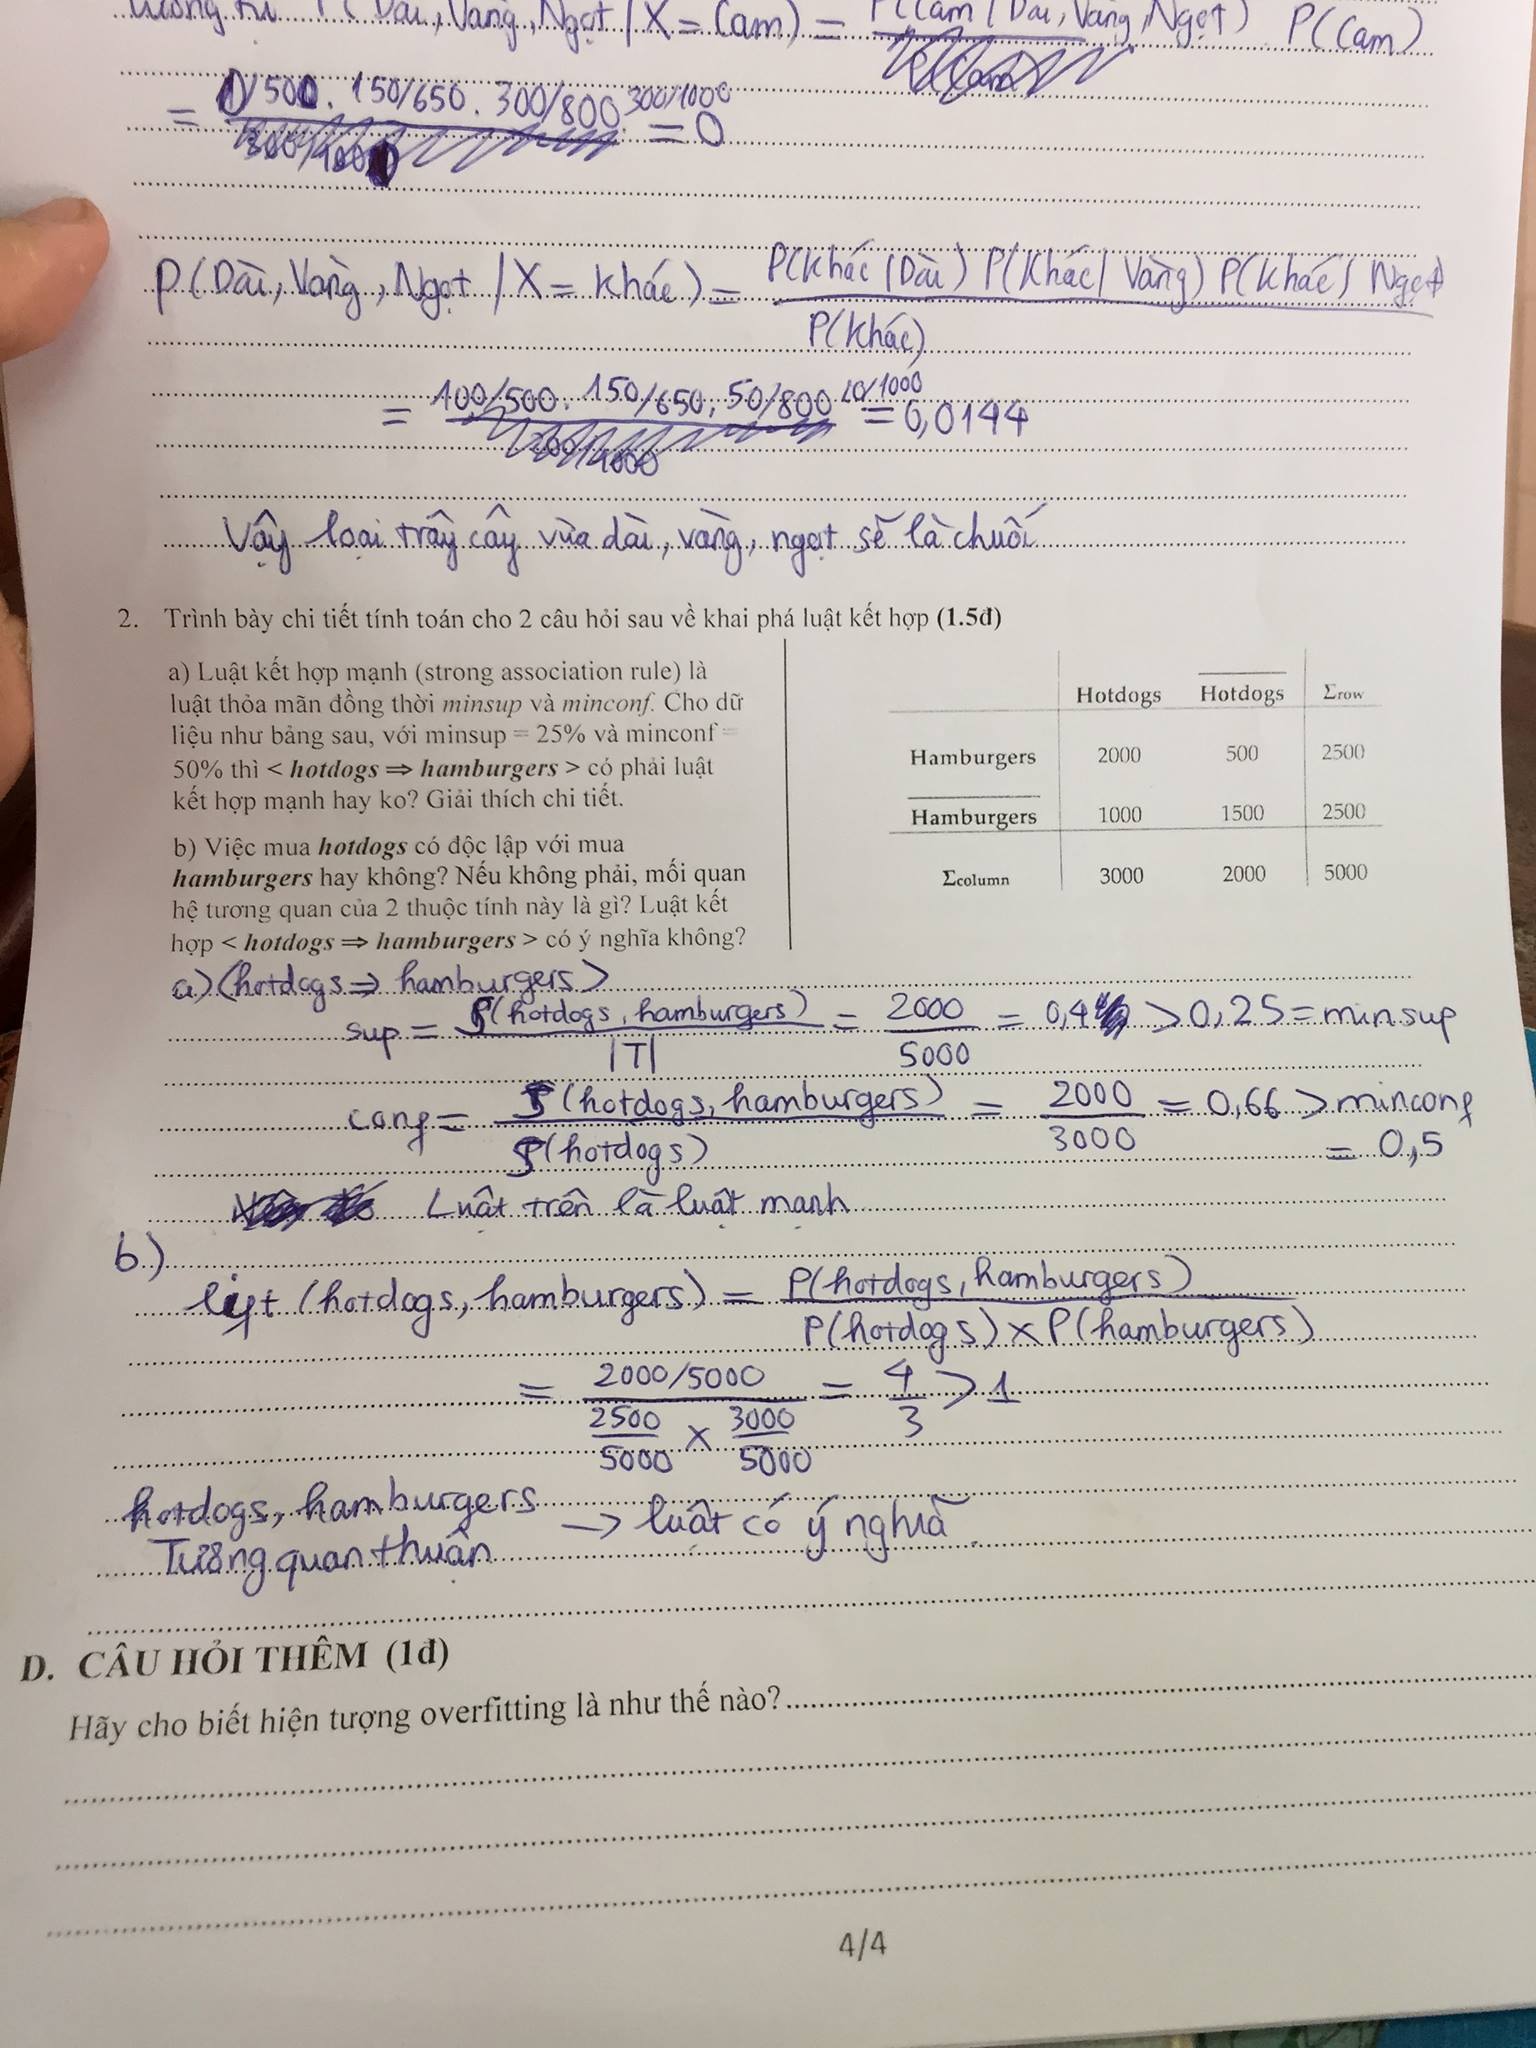 Tương tự P(Dài, Vàng, Ngọt / X = Cam) = P(Cam / Dài, Vàng, Ngọt) P(Cam)
= 0/500 . 150/650 . 300/800 300/1000 = 0
P(Dài, Vàng, Ngọt / X = Khác) = P(Khác/Dài) P(Khác/ Vàng) P(Khác/ Ngọt)
P(Khác)
= 100/500 . 150/650 . 50/800 20/1000 = 0,0144
Vậy loại trấy cây vừa dài, vàng, ngọt sẽ là chuối
2. Trình bày chi tiết tính toán cho 2 câu hỏi sau về khai phá luật kết hợp (1.5đ)
a) Luật kết hợp mạnh (strong association rule) là
luật thỏa mãn đồng thời minsup và minconf. Cho dữ
liệu như bảng sau, với minsup = 25% và minconf =
50% thì < hotdogs ⇒ hamburgers > có phải luật
kết hợp mạnh hay ko? Giải thích chi tiết.
b) Việc mua hotdogs có độc lập với mua
hamburgers hay không? Nếu không phải, mối quan
hệ tương quan của 2 thuộc tính này là gì? Luật kết
hợp < hotdogs ⇒ hamburgers > có ý nghĩa không?
Hotdogs Hotdogs Σrow
Hamburgers 2000 500 2500
Hamburgers 1000 1500 2500
Σcolumn 3000 2000 5000
a) (hotdogs ⇒ hamburgers)
sup = P(hotdogs, hamburgers) / |T| = 2000 / 5000 = 0,4 > 0,25 = minsup
conf = P(hotdogs, hamburgers) / P(hotdogs) = 2000 / 3000 = 0,66 > minconf
= 0,5
Luật trên là luật mạnh
b.)
lift (hotdogs, hamburgers) = P(hotdogs, hamburgers)
P(hotdogs) × P(hamburgers)
= 2000/5000 = 4/3 > 1
2500/5000 × 3000/5000
hotdogs, hamburgers → luật có ý nghĩa
Tương quan thuận
D. CÂU HỎI THÊM (1đ)
Hãy cho biết hiện tượng overfitting là như thế nào?
4/4